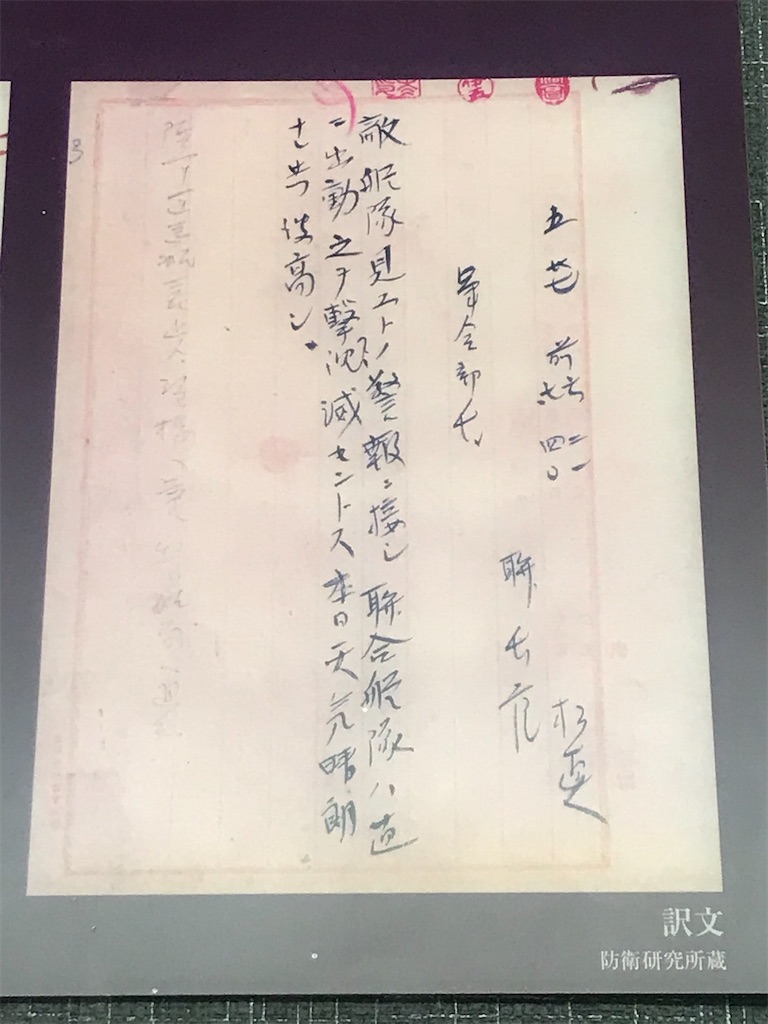 五 廿七 前
松真
聯長官
軍令部長
敵艦隊見ユトノ警報ニ接シ聯合艦隊ハ直
ニ出動之ヲ撃沈滅セントス本日天気晴朗
ナレ共波高シ
訳文
防衛研究所蔵